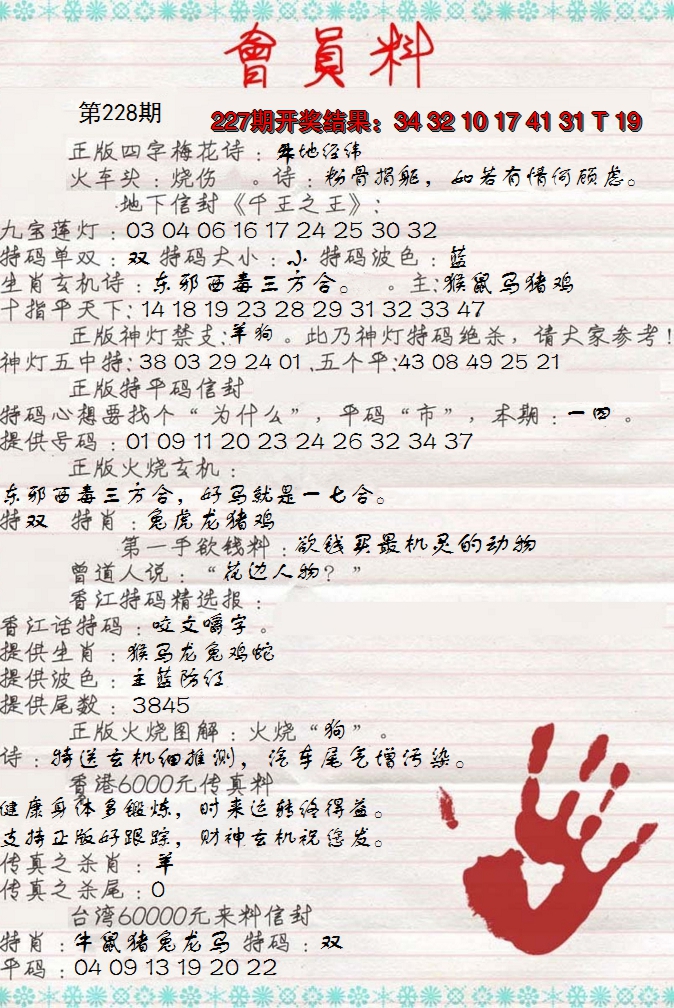 會員料
第228期
227期开奖结果：34 32 10 17 41 31 T 19
正版四字梅花诗：地经纬
火车头：烧伤 。诗：粉骨捐躯，如若有情何顾虑。
地下信封《千王之王》：
九宝莲灯：03 04 06 16 17 24 25 30 32
特码单双：双 特码大小：小 特码波色：蓝
生肖玄机诗：东邪西毒三方合。 。主:猴鼠马猪鸡
十指平天下: 14 18 19 23 28 29 31 32 33 47
正版神灯禁支:羊狗 。此乃神灯特码绝杀，请大家参考!
神灯五中特: 38 03 29 24 01 .五个平:43 08 49 25 21
正版特平码信封
特码心想要找个“ 为什么”，平码“市”，本期：一四 。
提供号码：01 09 11 20 23 24 26 32 34 37
正版火烧玄机：
东邪西毒三方合，好马就是一七合。
特双 特肖：兔虎龙猪鸡
第一手欲钱料：欲钱买最机灵的动物
曾道人说：“花边人物？”
香江特码精选报：
香江话特码：咬文嚼字 。
提供生肖：猴马龙兔鸡蛇
提供波色：主蓝防红
提供尾数： 3845
正版火烧图解：火烧“狗” 。
诗：特送玄机细推测，汽车尾气增污染。
香港6000元传真料
健康身体多锻炼，时来运转终得益。
支持正版好跟踪，财神玄机祝您发。
传真之杀肖：羊
传真之杀尾：0
台湾60000元来料信封
特肖：牛鼠猪兔龙马 特码：双
平码：04 09 13 19 20 22